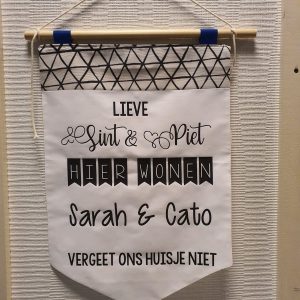 LIEVE
Sint & Piet
HIER WONEN
Sarah & Cato
VERGEET ONS HUISJE NIET